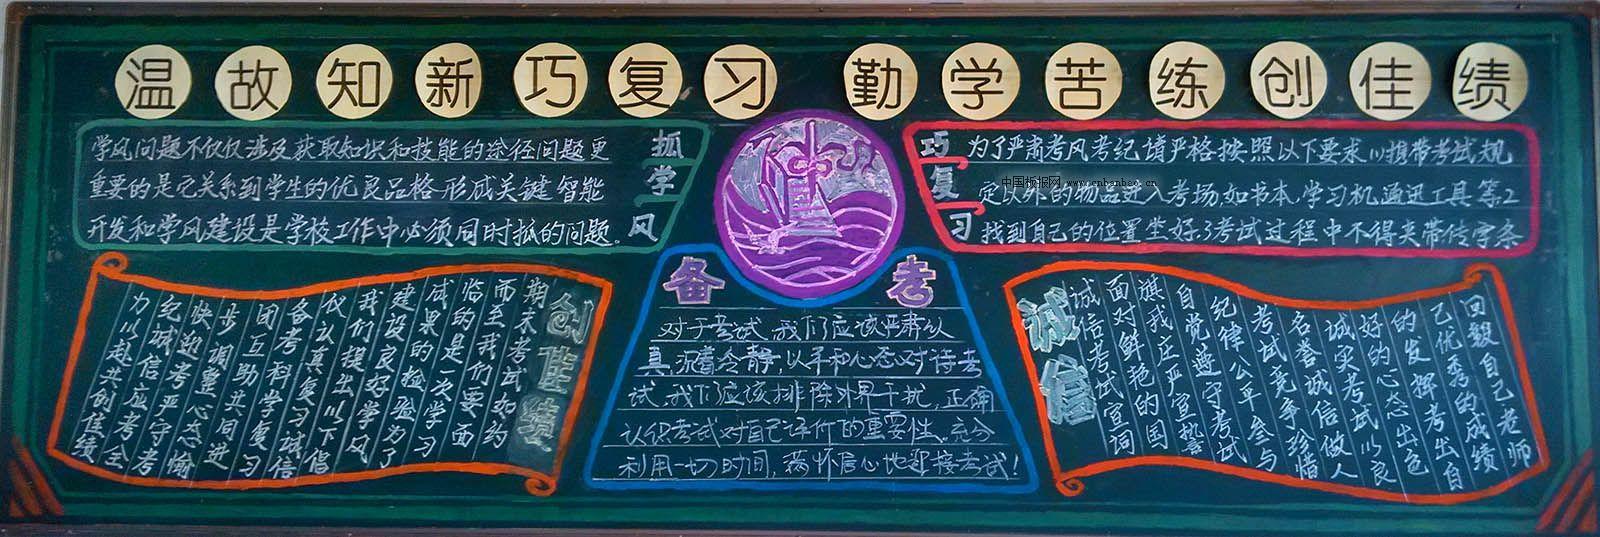 温故知新巧复习 勤学苦练创佳绩
学风问题不仅仅涉及获取知识和技能的途径问题更
重要的是它关系到学生的优良品格形成关键智能
开发和学风建设是学校工作中必须同时抓的问题。
抓学风
巧复习
为了严肃考风考纪请严格按照以下要求(1)携带考试规
定以外的物品进入考场,如书本,学习机,通迅工具等,2
找到自己的位置坐好,3考试过程中不得夹带传字条
中国板报网 www.cnbanbao.cn
创佳绩
期末考试如约
而至我们要面
临的是一次学习
试果的检验为了
建设良好学风
我们提出以下倡
仪认真复习诚信
备考科学复习
团互助共同进
步调整心态愉
快迎考严守考
纪诚信应考全
力以赴共创佳绩
备考
对于考试,我们应该严肃认
真,沉着冷静,以平和心态对待考
试,我们应该排除外界干扰,正确
认识考试对自己评价的重要性。充分
利用一切时间,满怀信心地迎接考试!
诚信
诚信考试宣词
面对鲜艳的国
旗我庄严宣誓
自觉遵守考试
纪律公平参与
考试竞争珍惜
名誉诚信做人
诚实考试以良
好的心态出色
的发挥考出自
己优秀的成绩
回报自己老师